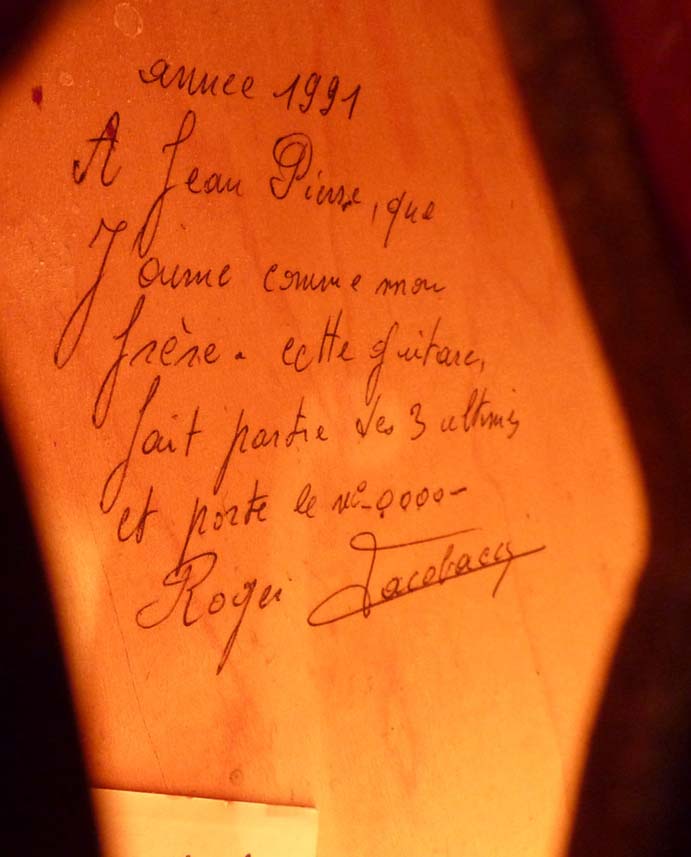 année 1991
A Jean Pierre, que
J'aime comme mon
frère. cette guitare,
fait partie des 3 ultimes
et porte le n°-0000-
Roger Jacobacci